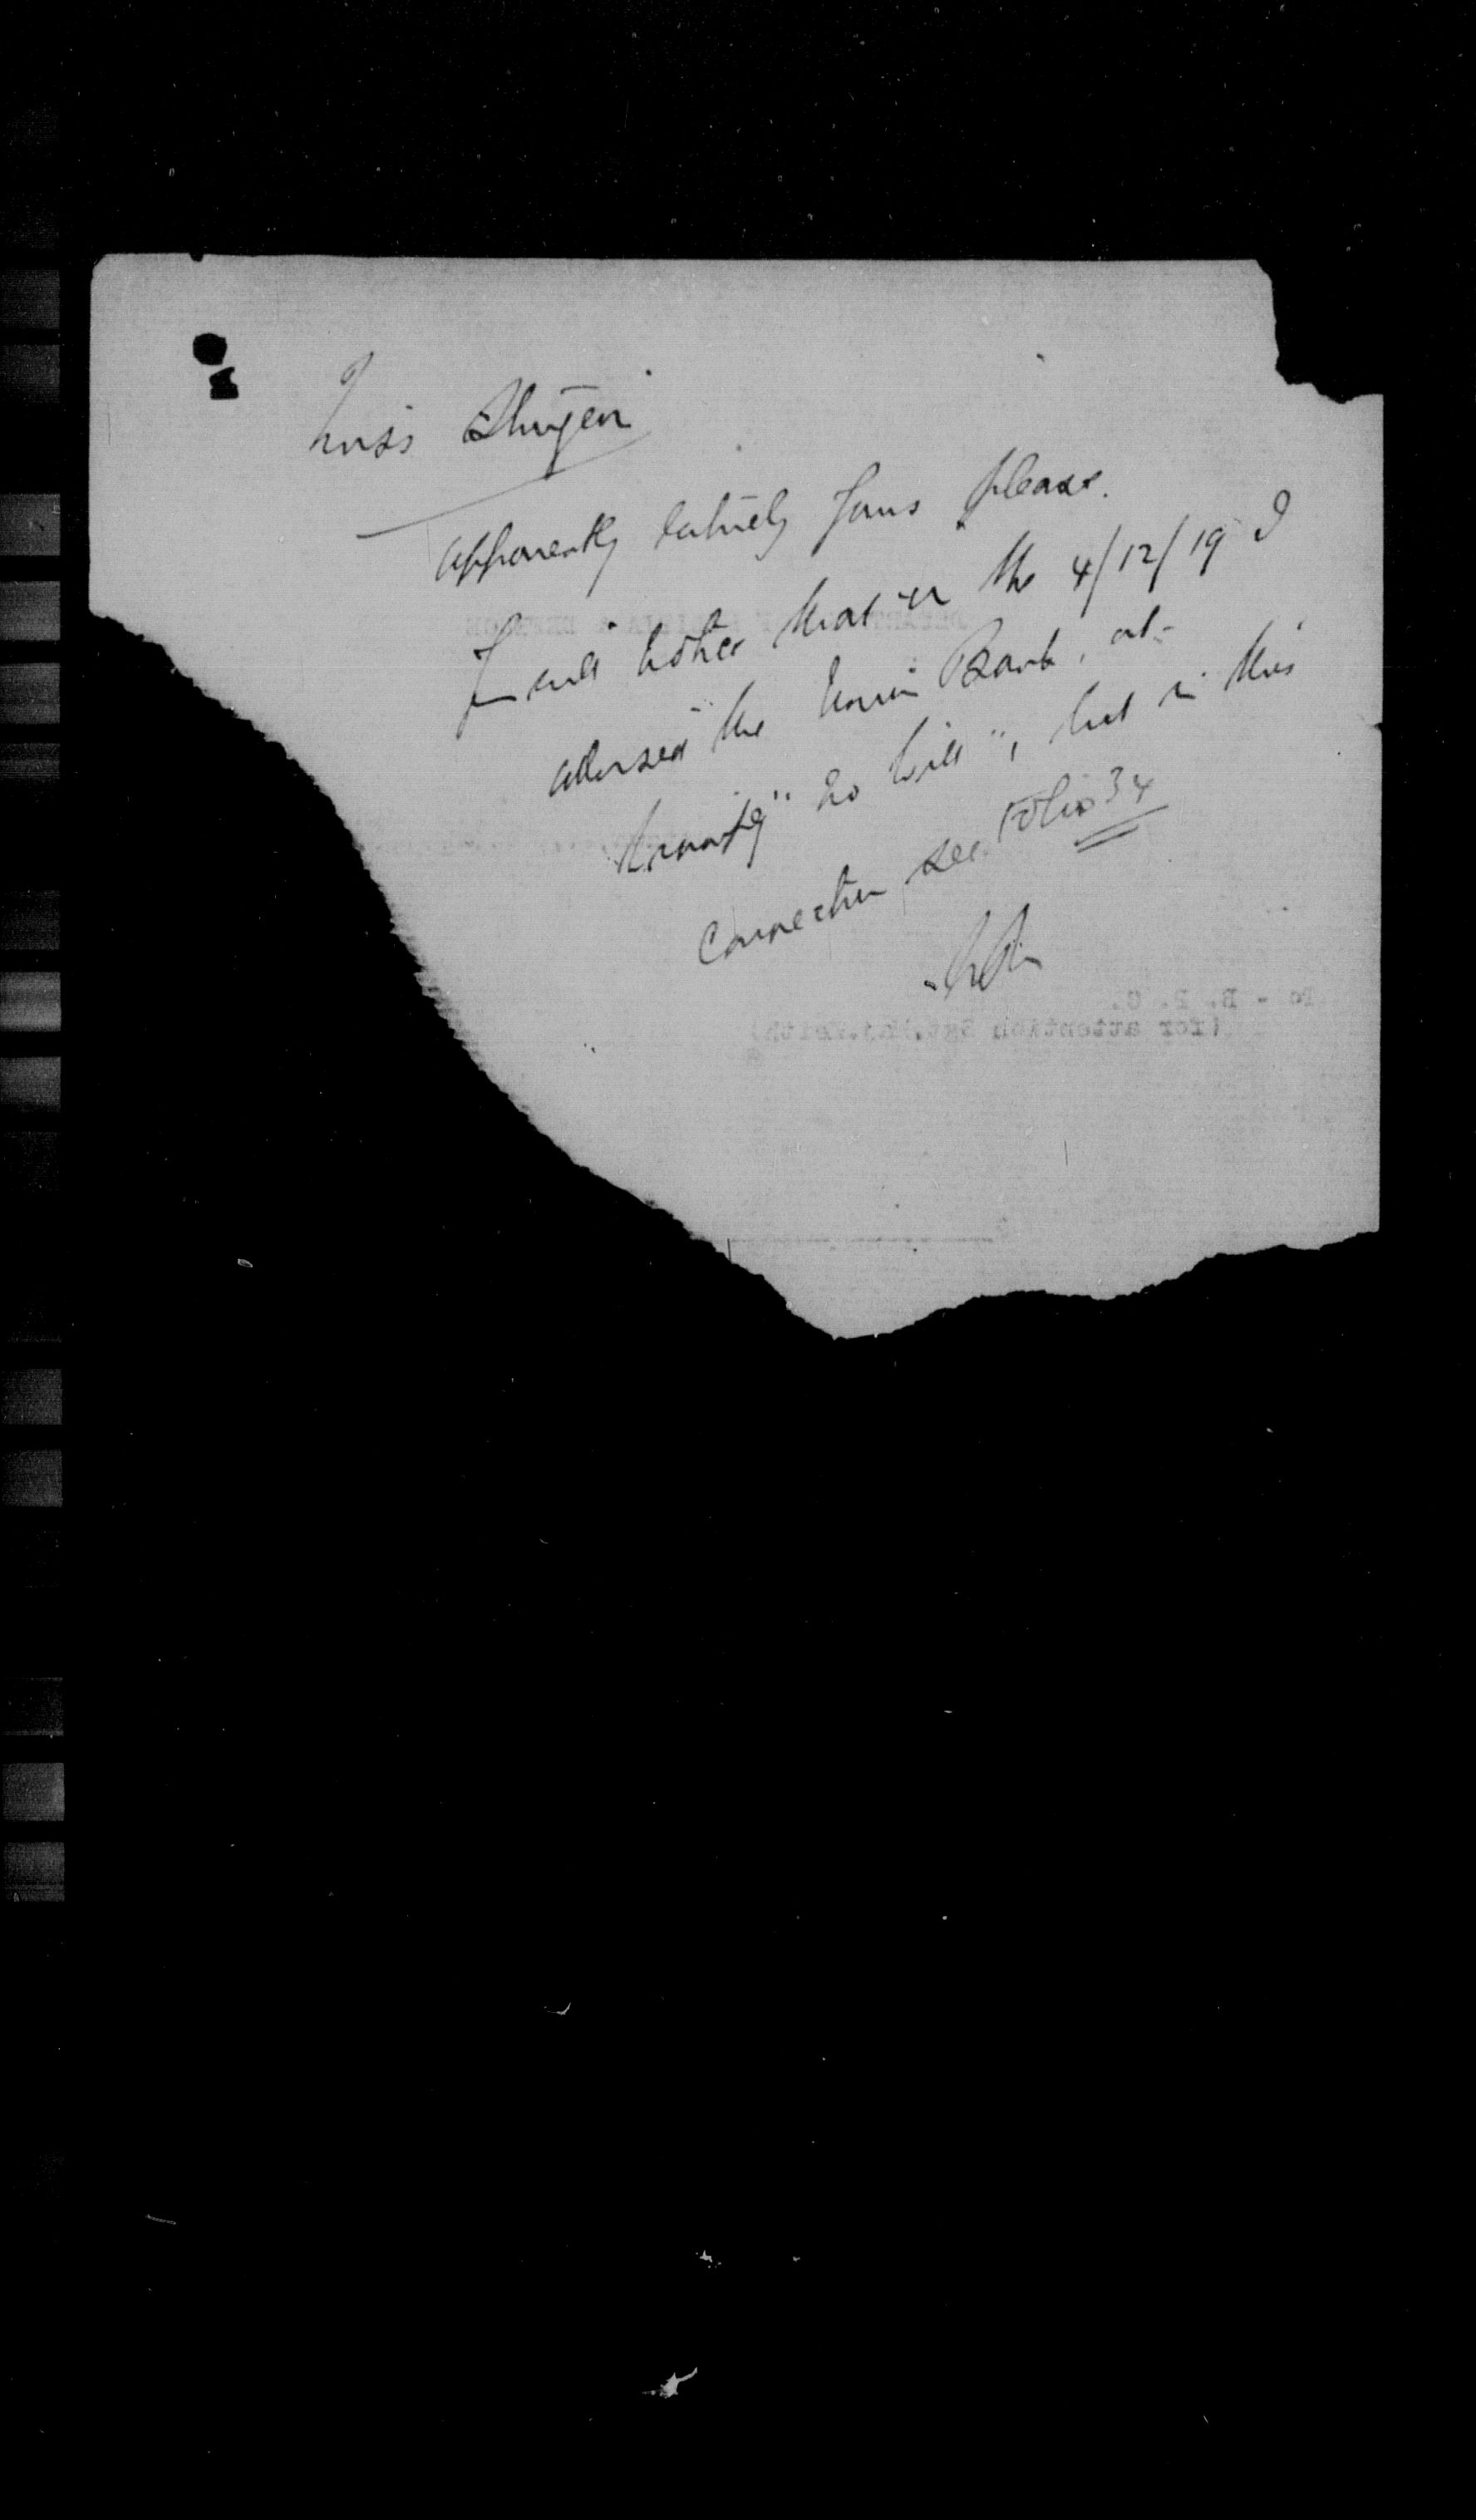 Miss
apparently entirely yours please.
You will notice that on the 4/12/19 I
advised the Union Bank, at
"no will", but in this
connection see Folio 34
To - E. P. C.
(for attention Sgt.